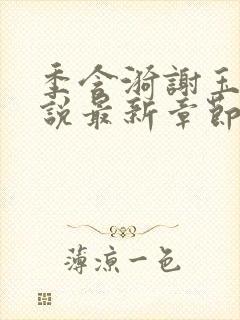 季含漪謝玉
說最新章節
薄涼一色